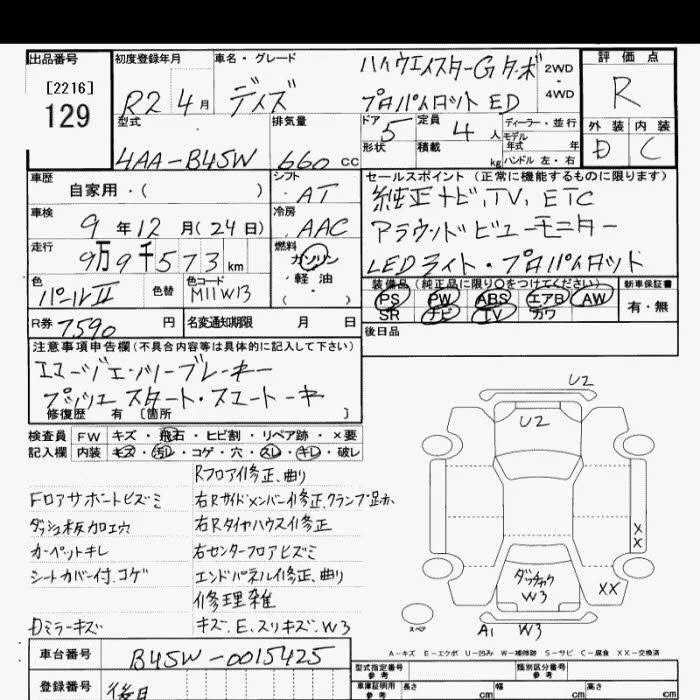 出品番号
[2216]
129
初度登録年月
R2 4月
車名・グレード
デイズ
ハイウエイスターGターボ
プロパイロット ED
2WD
4WD
評価点
R
外装 内装
D C
型式
4AA-B45W
排気量
660 cc
ドア
5
定員
4 人
形状
積載
kg
ディーラー・並行
モデル
年式 年
ハンドル 左・右
車歴
自家用・( )
シフト
AT
車検
9年12月(24日)
冷房
AAC
走行
9万9千573km
燃料
ガソリン
・軽油
・( )
色
パールⅡ
色替
色コード
M11W13
セールスポイント (正常に機能するものに限ります)
純正ナビ,TV,ETC
アラウンドビューモニター
LEDライト・プロパイロット
装備品(純正品に限り○をつけてください)
PS PW ABS エアB AW
SR ナビ TV カワ
新車保証書
有・無
後日品
R券 7590 円
名変通知期限 月 日
注意事項申告欄(不具合内容等は具体的に記入して下さい)
エマージェンシーブレーキー
プッシュスタート・スマートキー
修復歴 有 [箇所 ]
検査員 FW キズ・飛石・ヒビ割・リペア跡・×要
記入欄 内装 キズ・汚レ・コゲ・穴・スレ・キレ・破レ
Rフロア修正、曲り
Fロアサポートヒズミ
右Rサイドメンバー修正、クランプ跡
ダッシュ板加工穴
右Rタイヤハウス修正
カーペットキレ
右センターフロアヒズミ
シートカバー付、コゲ
エンドパネル修正、曲り
修理雑
Dミラーキズ
キズ、E、スリキズ、W3
U2
U2
X
X
XX
ダッチャク
W3
スペア
A1 W3
A-キズ E-エクボ U-凹み W-補修跡 S-サビ C-腐食 XX-交換済
車台番号
B45W-0015425
登録番号
後日
型式指定番号
参考
類別区分番号
参考
車庫証明用
参考
長さ cm 幅 cm 高さ cm